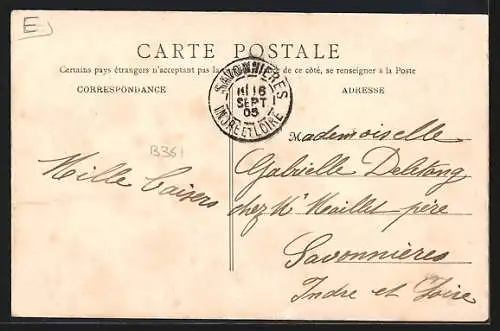 E
CARTE POSTALE
Certains pays étrangers n'acceptant pas la de ce côté, se renseigner à la Poste
CORRESPONDANCE
ADRESSE
SAVONNIÈRES
16
SEPT
05
INDRE ET LOIRE
B361
Mille Baisers
Mademoiselle
Gabrielle Deletang
chez Mr Maillet père
Savonnières
Indre et Loire